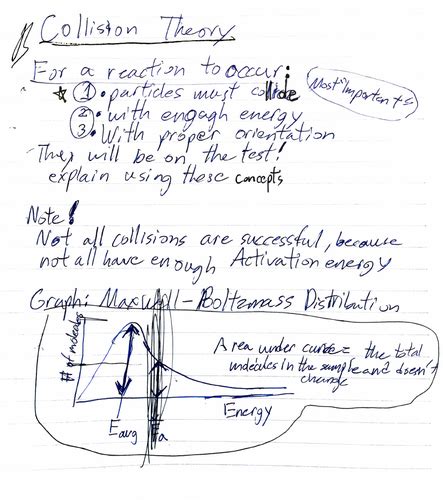 B Collision Theory
For a reaction to occur:
☆ 1. particles must collide
Most importants
2. with engagh energy
3. With proper orientation
They will be on the test!
explain using these concepts
Note!
Not all collisions are successful, because
not all have enough Activation energy
Graph: Maxwell-Boltzmass Distribution
# of molecules
Area under curve = the total
molecules in the sample and doesn't
change
Energy
Eavg
Ea